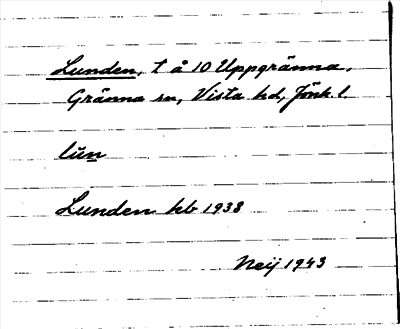 Lunden, t å 10 Uppgränna,
Gränna sn, Vista hd, Jönk. l.
lùn
Lunden kb 1938
Neij 1943